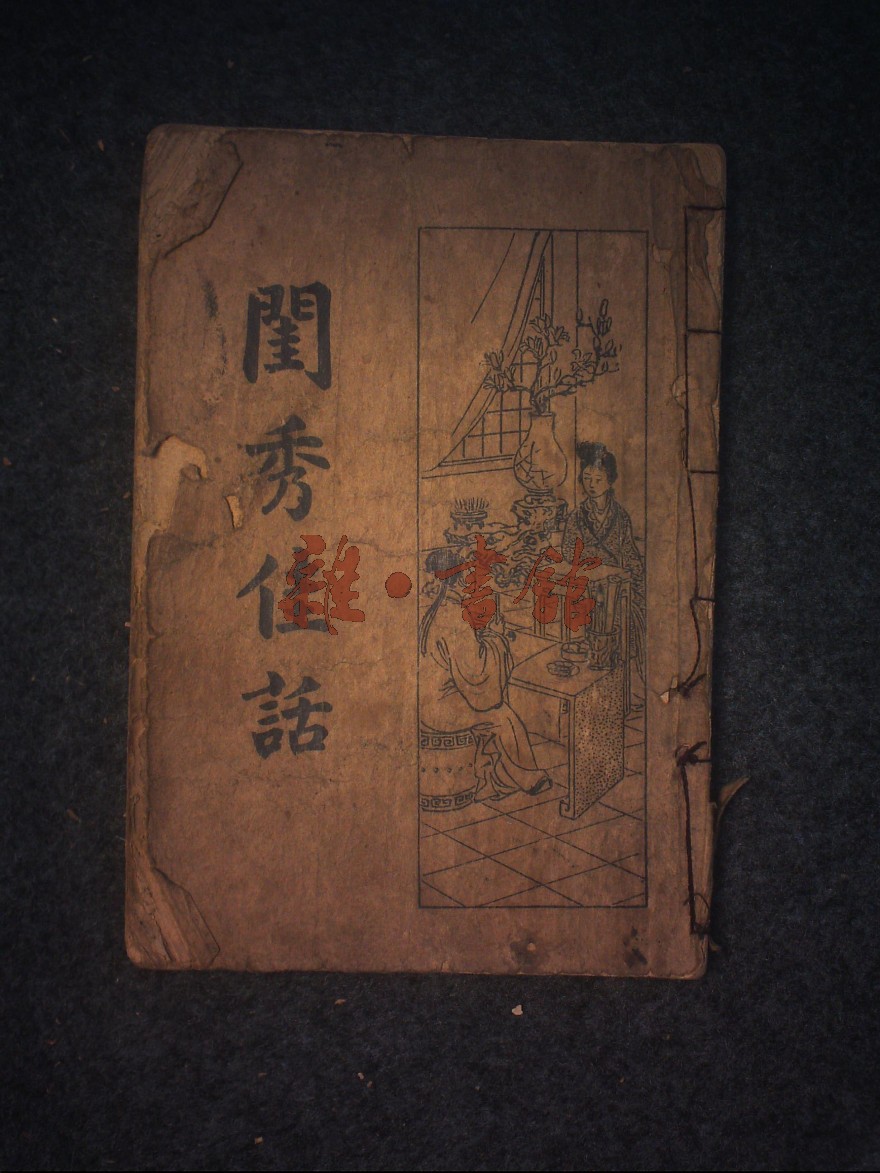 閨秀佳話
雜·書館